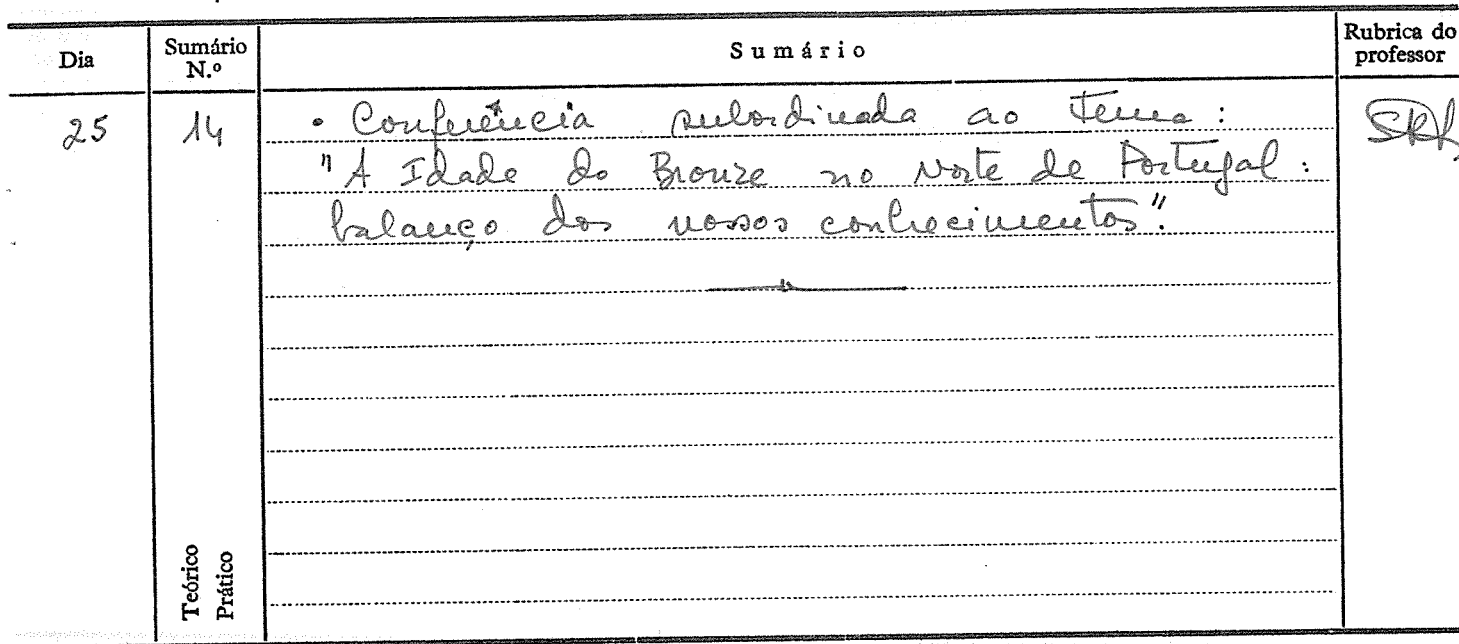 Dia
Sumário N.º
Sumário
Rubrica do professor
25
14
• Conferência subordinada ao tema:
"A Idade do Bronze no Norte de Portugal:
balanço dos nossos conhecimentos".
Teórico
Prático